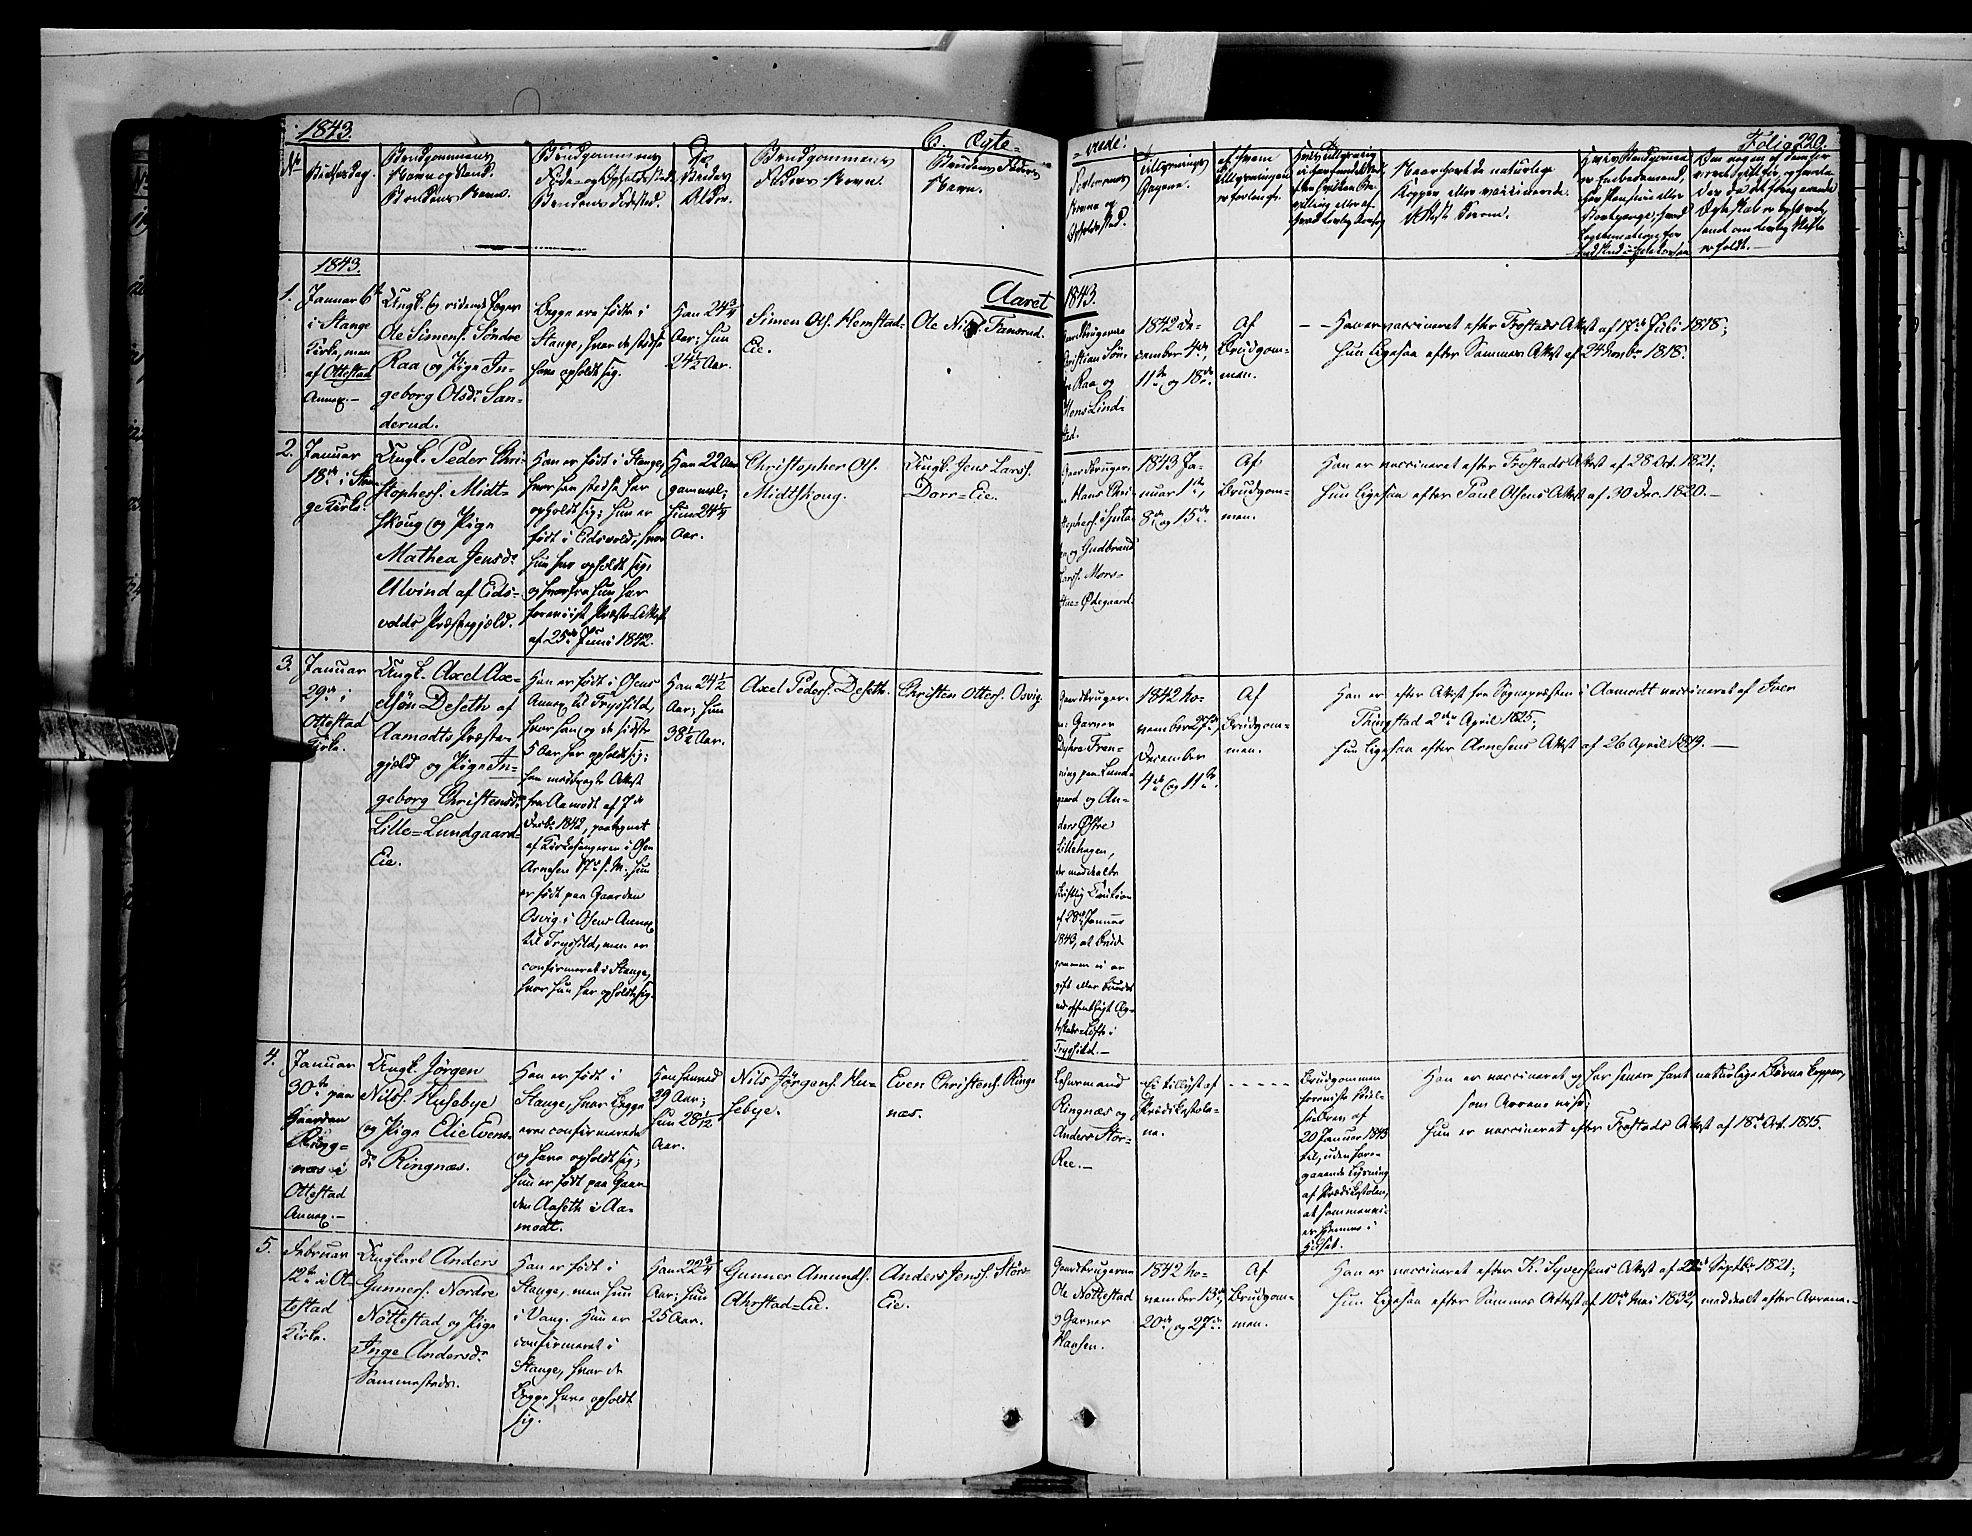 1843.
C. Ægte=
=viede:
Folio 220.
No
Vielsesdag.
Brudgommens
Navn og Stand.
Brudens Navn.
Brudgommens
Føde- og Opholdssted.
Brudens Fødested.
Brudens
Alder.
Brudgommens
Faders Navn.
Brudens Faders
Navn.
Forlovernes
Navne og
Opholdssted.
Tillysnings
Dagene.
af hvem
Tillysningen
er forlangt.
Naar havt de naturlige
Kopper eller vaccinerede.
1843.
Aaret
1843.
1.
Januar 6te
i Stange
Kirke, men
af Ottestad
Annex.-
Ungk. og ridende Jæger
Ole Simens. Søndre
Raa og Pige In=
geborg Olsdr. San=
derud.
Begge ere fødte i
Stange, hvor de stedse
have opholdt sig.
Han 24 3/4
Aar; hun
24 1/2 Aar.
Simen Ols. Hemstad=
Eie.
Ole Nils. Fansrud.
Gaardbrugerne
Christian Søn=
dre Raa og
Mons Lind=
stad.
1842 De=
cember 4de,
11te og 18de.
Af
Brudgom=
men.
-- Han er vaccineret efter Frostads Attest af 17de Juli 1818;
Hun ligesaa efter Sammes Attest af 24 Novbr. 1818.
2.
Januar
18de i Stan=
ge Kirke.
Ungk. Peder Chri=
stophers. Midt=
skoug og Pige
Mathea Jensdr.
Ulvind af Eids=
volds Præstegjeld.
Han er født i Stange,
hvor han stedse har
opholdt sig; hun er
født i Eidsvold, hvor
hun har opholdt sig,
og hvorfra hun har
foreviist Præste-Attest
af 25de Juni 1842.
Han 22 Aar
gammel;
Hun 24 1/4
Aar.
Christopher Ols.
Midtskoug.
Ungk. Jens Lars.
Dorr=Eie.
Gaardbruger-
ne Hans Chri=
stophers.
og Gudbrand
Lars. Mors=
tue=Ødegaard.
1843 Ja=
nuar 1ste,
8de og 15de.
Af
Brudgom=
men.
Han er vaccineret efter Frostads Attest af 28 Oct. 1821;
Hun ligesaa efter Paul Olsens Attest af 30 Dec. 1820.-
3.
Januar
29de i
Ottestad
Kirke.
Ungk. Axel Ax=
elsøn Deseth af
Aamodts Præste=
gjeld og Pige In=
geborg Christensdr.
Lille=Lundgaard=
Eie.
Han er født i Osens
Annex til Trysild,
hvor han og de sidste
5 Aar har opholdt sig;
han medbragte Attest
fra Aamodt af 7de
Decbr. 1842, paategnet
af Kirkesangeren i Osen
Arnesen 17de s. M.; hun
er født paa Gaarden
Osvig i Osens Annex
til Trysild, men er
confirmeret i Stange,
hvor hun har opholdt sig.
Han 24 1/2
Aar; hun
38 1/2 Aar.
Axel Peders. Deseth.
Christen Otters. Osvig.
Gaardbruger-
ne Garver
Fren=
ning paa Lund=
gaard og An=
ders Østre
Lillehagen,
der meddeelte
skriftlig Caution
af 28de Januar
1843, at Brud=
gommen ei er
gift eller bundet
ved offentligt Æg=
teskabs-Løfte i
Trysild.-
1842 No=
vember 27de,
December
4de og 11te.
Af
Brudgom=
men.
Han er efter Attest fra Sognepræsten i Aamodt vaccineret af Iver
Thingstad 2den April 1825;
Hun ligesaa efter Arnesens Attest af 26 April 1819.-
4.
Januar
30te paa
Gaarden
Ring=
næs i
Ottestad
Annex.-
Ungk. Jörgen
Nils. Husebye
og Pige Elie Evens=
dr. Ringnæs.
Han er født i
Stange, hvor Begge
ere confirmerede
og have opholdt sig;
hun er født paa Gaar=
den Aaseth i Aa=
modt.
39 Aar;
Hun 28 1/12
Aar.
Nils Jörgens. Hu=
sebye.
Even Christens. Ring=
næs.
Lehnsmand
Ringnæs og
Anders Stor=
Ree.-
Ei tillyst af
Prædikestole=
ne.
-----
Brudgommen
foreviste Bevil=
af
20 Januar 1843
til, uden fore=
gaaende Lysning
af Prædikestolen,
at sammenvi=
es hjemme i
Huset.
Han er vaccineret og har senere havt naturlige Børne Kopper,
som Arrene vise;
Hun er vaccineret efter Frostads Attest af 18de Oct. 1815.
5.
Februar
12te i Ot=
testad
Kirke.
Ungkarl Anders
Gunners. Nordre
Nöttestad og Pige
Inge Andersdr.
Sammesteds.
Han er født i
Stange, men hun
i Vang. Hun er
confirmeret i
Stange, hvor de
Begge have opholdt
sig.
Han 22 3/4
Aar; hun
25 Aar.
Gunner Amunds.
Ahrstad=Eie.
Anders Jens. Stör=
Eie.
Gaardbrugerne
Ole Nöttestad
og Garver
Hansen.
1842 No=
vember 13de,
20de og 27de.
Af
Brudgom=
men.
Han er vaccineret efter K. Syversens Attest af 22de Septbr. 1821;
Hun ligesaa efter Sammes Attest af 10de Mai 1832, meddeelt efter Arrene.-